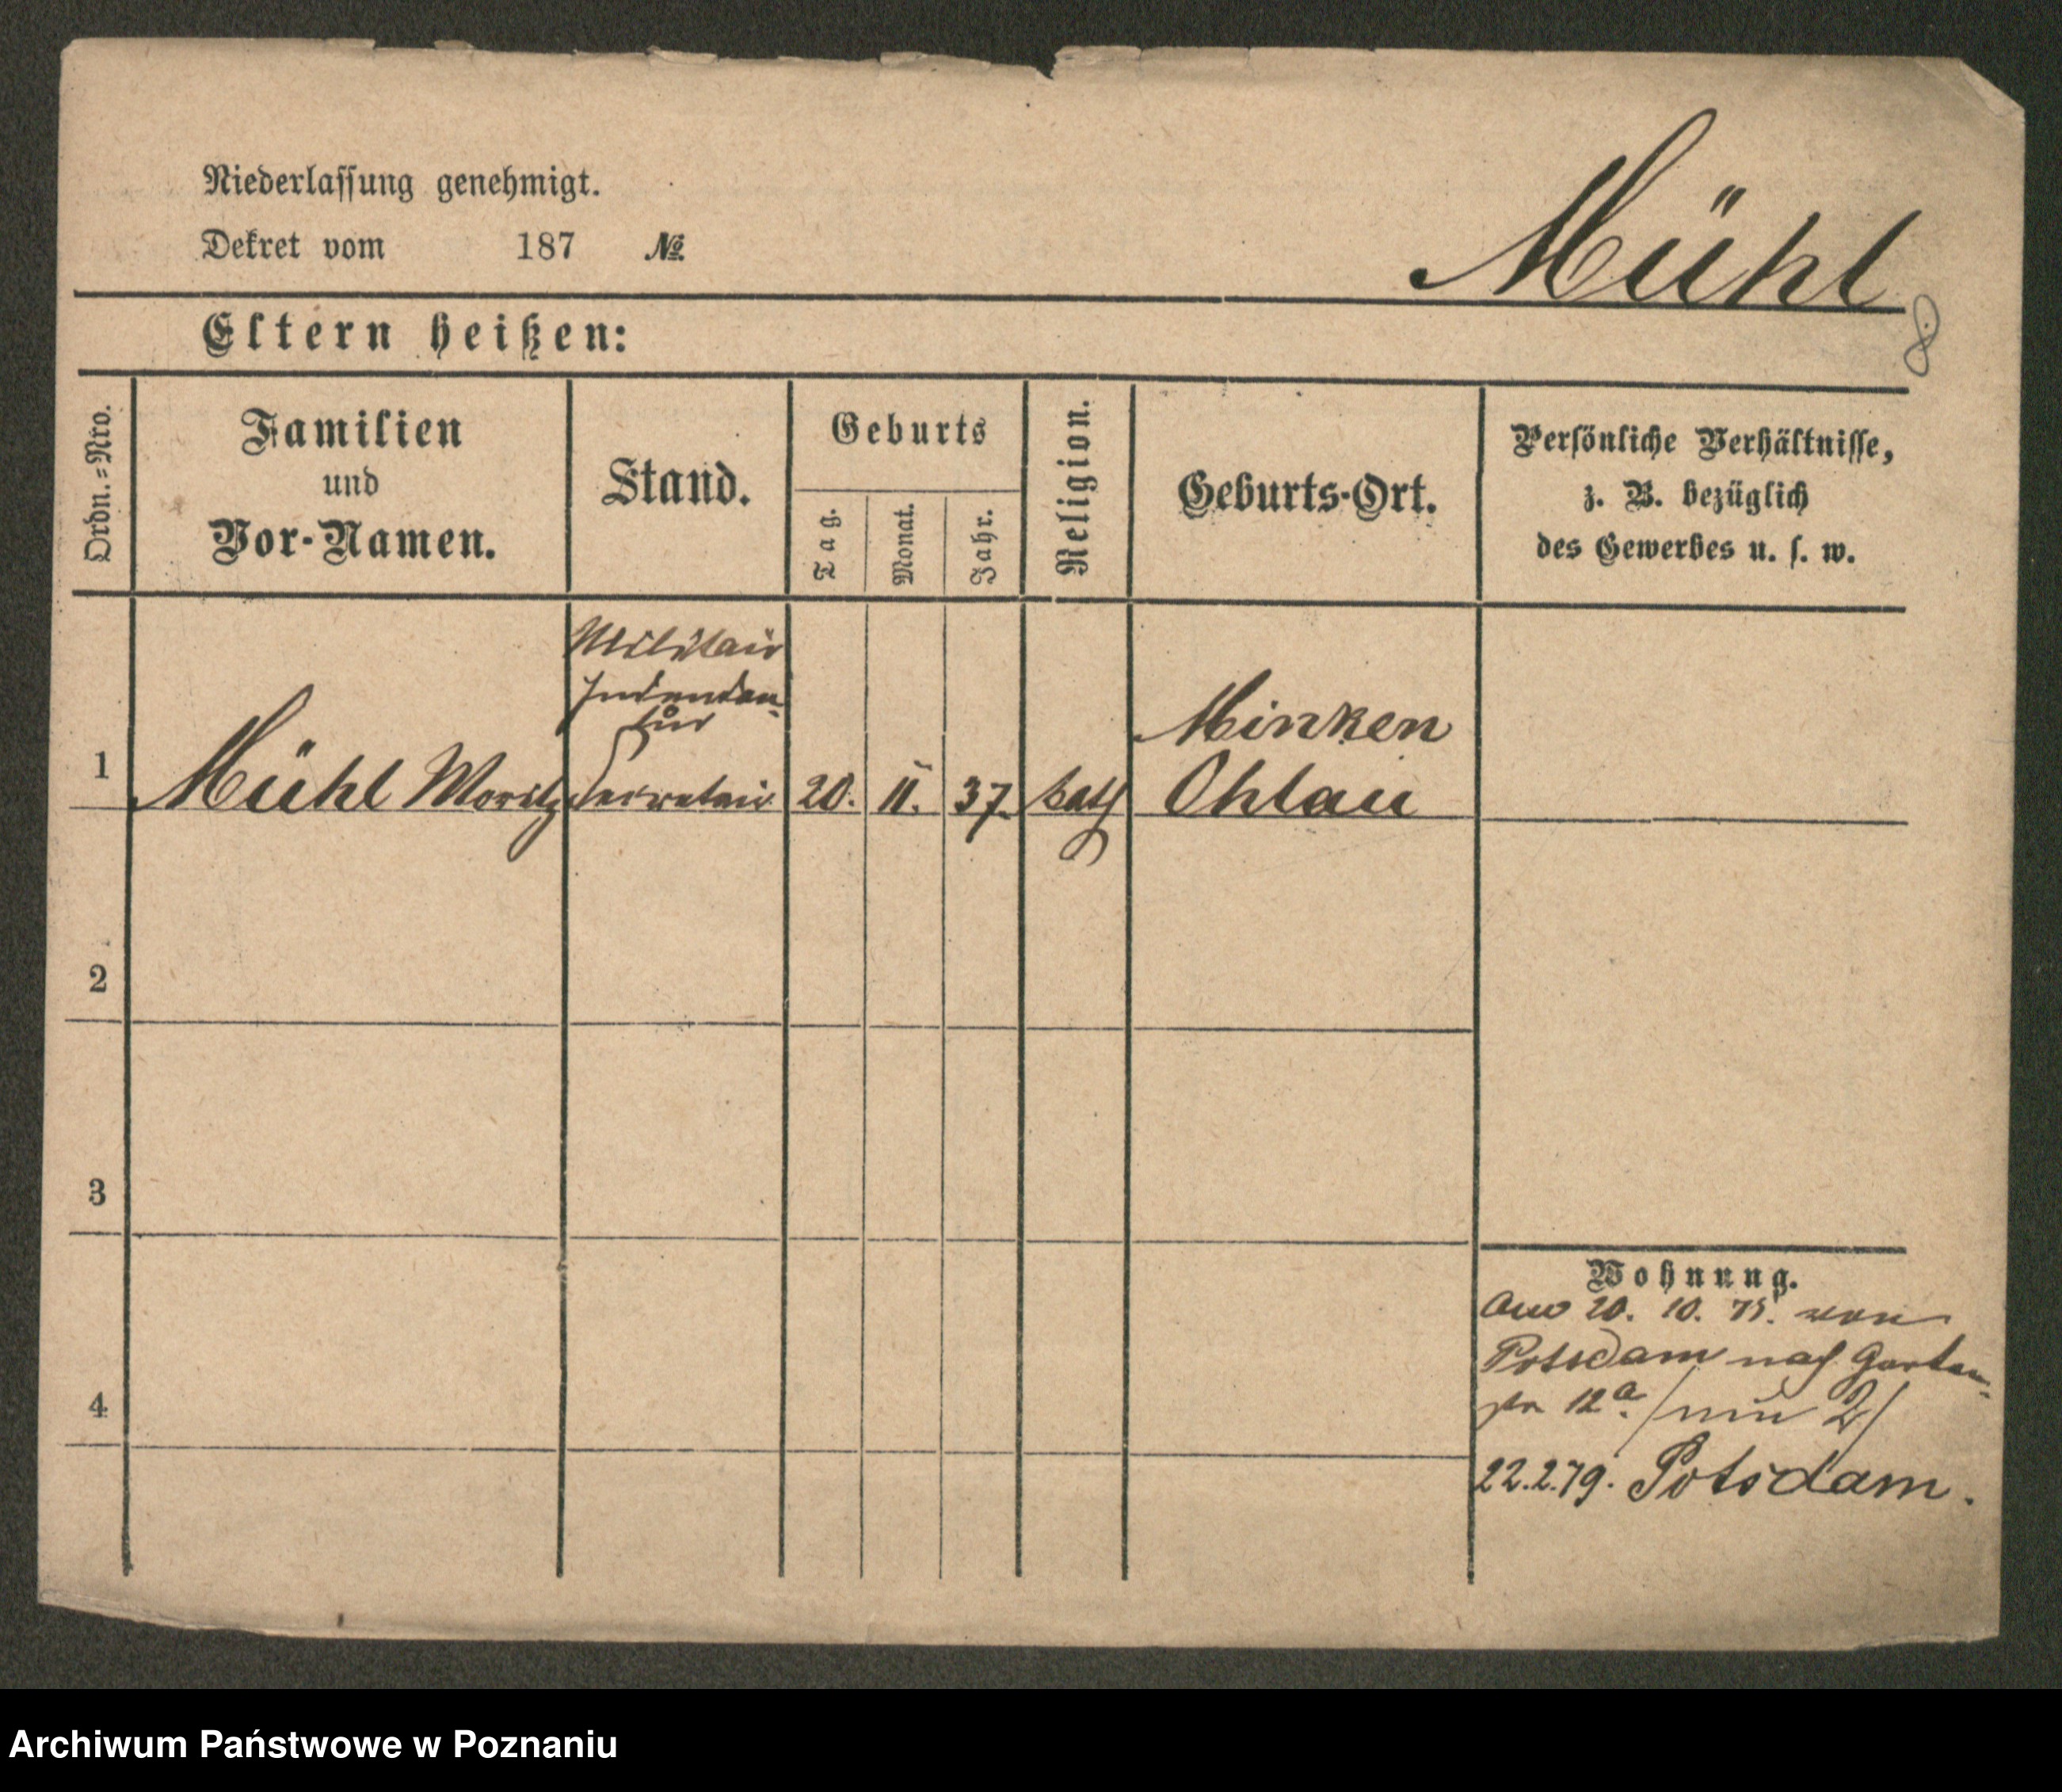 Niederlassung genehmigt.
Dekret vom 187 №
Mühl
8
Eltern heißen:
Ordn.=Nro.
Familien
und
Vor-Namen.
Stand.
Geburts
Tag.
Monat.
Jahr.
Religion.
Geburts-Ort.
Persönliche Verhältnisse,
z. B. bezüglich
des Gewerbes u. s. w.
Militair
Intendan-
tur
1 Mühl Moritz Secretair 20. 11. 37. kath
Minken
Ohlau
2
3
4
Wohnung.
20. 10. 75. von
Potsdam nach Garten-
str 12a.
22.2.79. Potsdam.
Archiwum Państwowe w Poznaniu